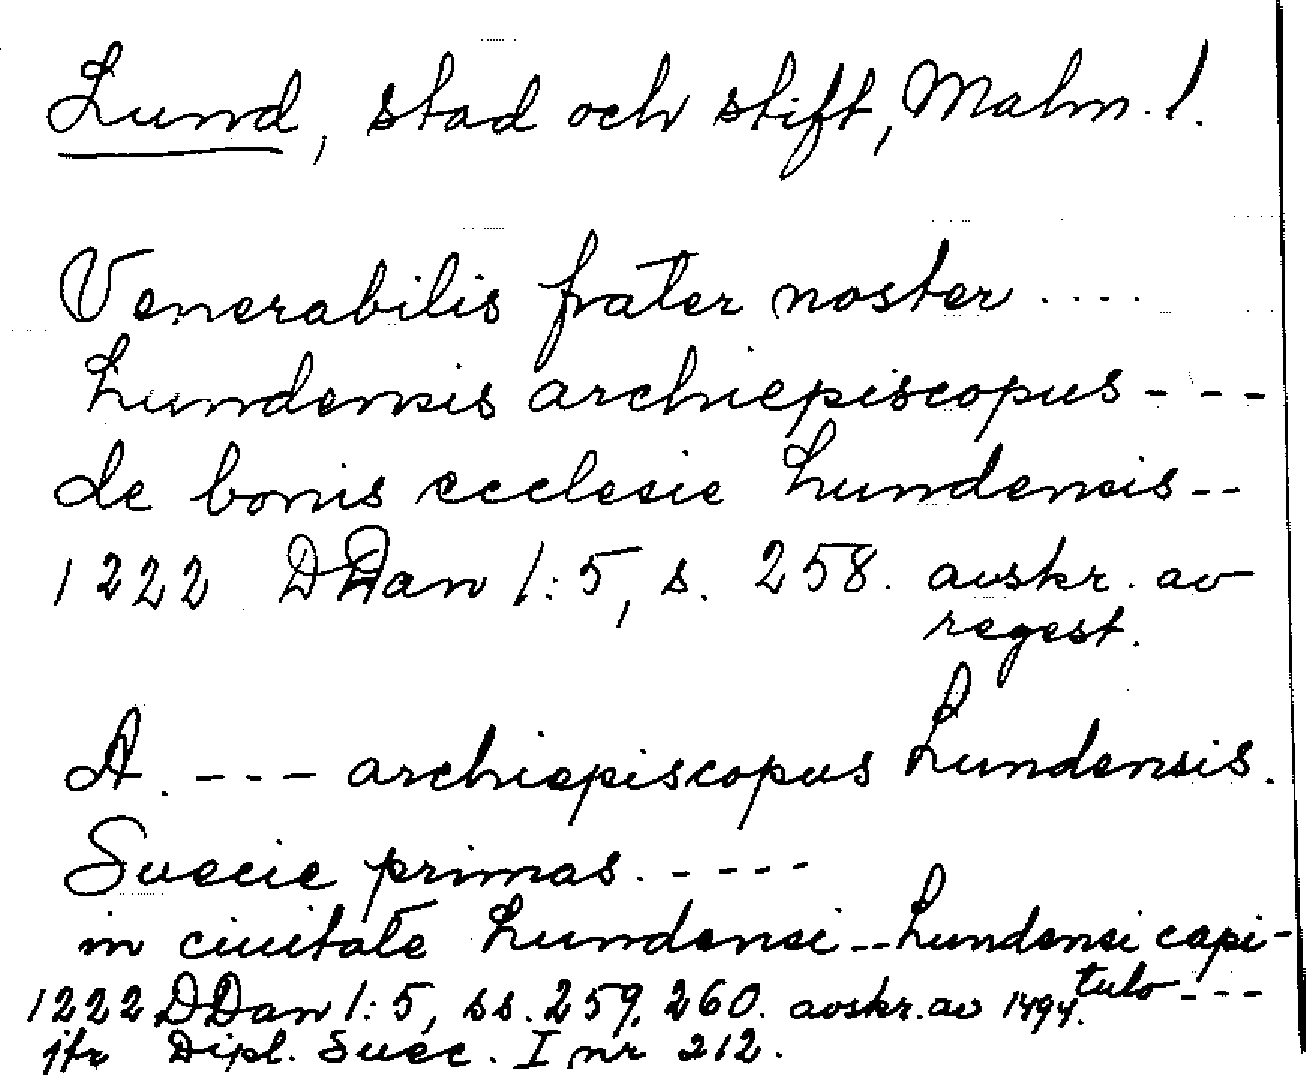 Lund, stad och stift, Malm. l.
Venerabilis frater noster ....
Lundensis archiepiscopus - - -
de bonis ecclesie Lundensis--
1222 DDan 1:5, s. 258. avskr. av
regest.
A. - - - archiepiscopus Lundensis.
Suecie primas. - - - -
in ciuitate Lundensi -- Lundensi capi-
tulo - - -
1222 DDan 1:5, ss. 259, 260. avskr. av 1494.
jfr Dipl. Suec. I nr 212.